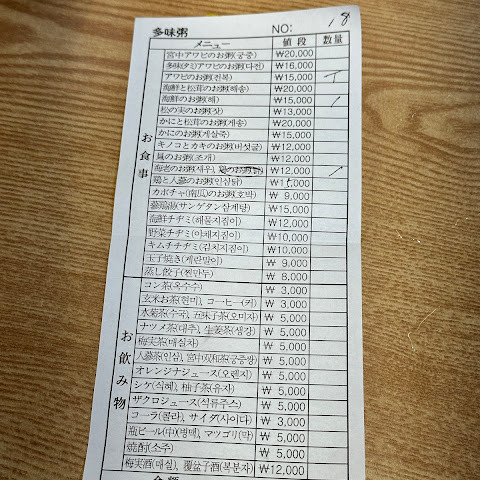 多味粥 NO: 18
メニュー 値段 数量
お食事
宮中アワビのお粥(궁중) ₩20,000
多味(タミ)アワビのお粥(다전) ₩16,000
アワビのお粥(전복) ₩15,000 丅
海鮮と松茸のお粥(해송) ₩20,000
海鮮のお粥(해) ₩15,000 /
松の実のお粥(잣) ₩13,000
かにと松茸のお粥(게송) ₩20,000
かにのお粥(게살죽) ₩15,000
キノコとカキのお粥(버섯굴) ₩12,000
貝のお粥(조개) ₩12,000
海老のお粥(새우), 鶏のお粥(닭) ₩12,000 /
鶏と人蔘のお粥(인삼닭) ₩15,000
カボチャ(南瓜)のお粥(호박) ₩ 9,000
蔘鶏湯(サンゲタン삼계탕) ₩15,000
海鮮チヂミ(해물지짐이) ₩12,000
野菜チヂミ(야채지짐이) ₩10,000
キムチチヂミ(김치지짐이) ₩10,000
玉子焼き(계란말이) ₩ 9,000
蒸し餃子(찐만두) ₩ 8,000
お飲み物
コン茶(옥수수) ₩ 3,000
玄米お茶(현미), コーヒー(커) ₩ 3,000
水菊茶(수국), 五味子茶(오미자) ₩ 5,000
ナツメ茶(대추), 生姜茶(생강) ₩ 5,000
梅実茶(매실차) ₩ 5,000
人蔘茶(인삼), 宮中双和茶(궁중쌍) ₩ 5,000
オレンジナジュース(오렌지) ₩ 5,000
シケ(식혜), 柚子茶(유자) ₩ 5,000
ザクロジュース(석류주스) ₩ 5,000
コーラ(콜라), サイダ(사이다) ₩ 3,000
瓶ビール(中)(병맥), マツコリ(막) ₩ 5,000
焼酎(소주) ₩ 5,000
梅実酒(매실), 覆盆子酒(복분자) ₩12,000